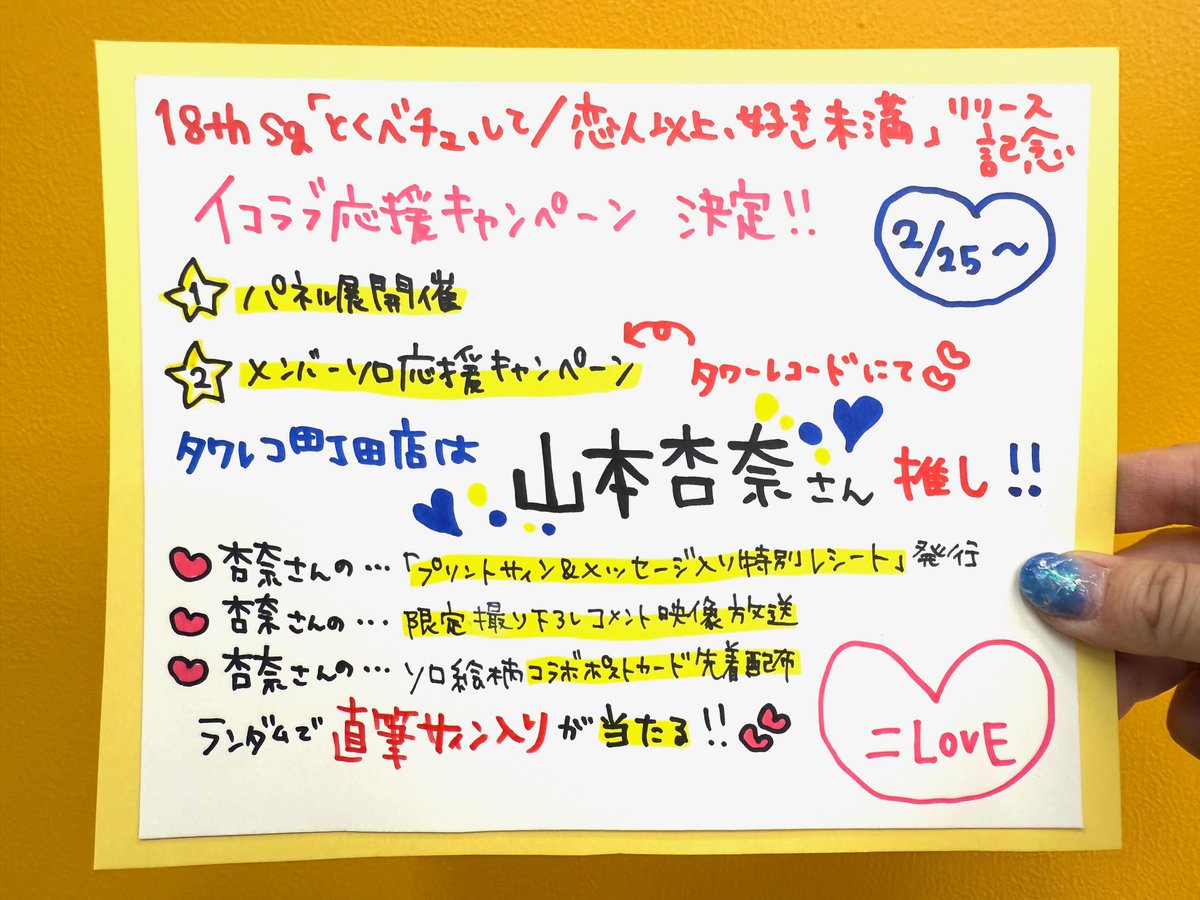 18th Sg「とくべチュ、して/恋人以上、好き未満」リリース記念
イコラブ応援キャンペーン 決定!!
2/25~
1 パネル展開催
2 メンバーソロ応援キャンペーン
タワーレコードにて
タワレコ町田店は 山本杏奈さん 推し!!
杏奈さんの…「プリントサイン&メッセージ入り特別レシート」発行
杏奈さんの…限定撮り下ろしコメント映像放送
杏奈さんの…ソロ絵柄コラボポストカード先着配布
ランダムで直筆サイン入りが当たる!!
=LOVE